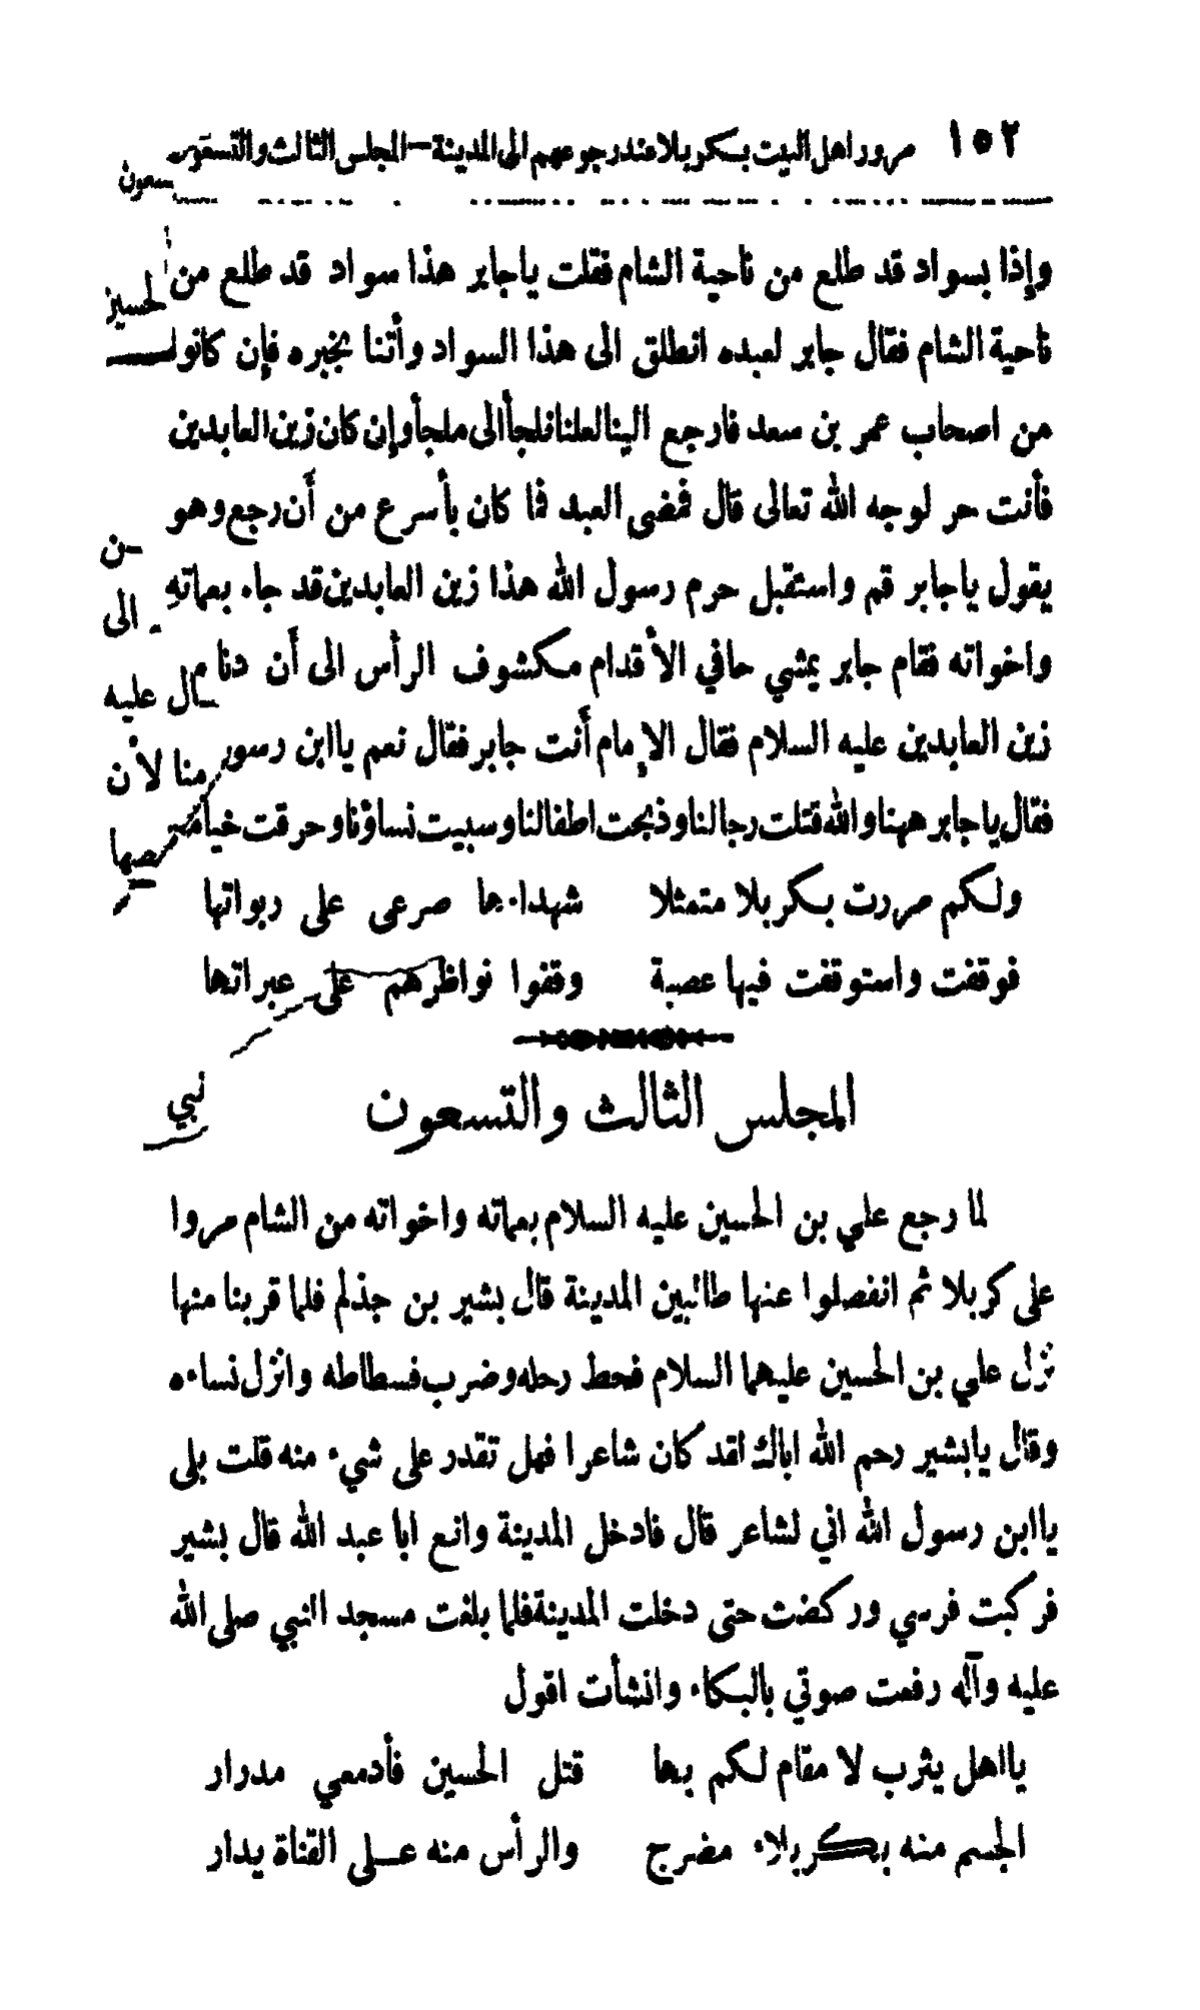 ١٥٢ مرور اهل البيت بكربلا عند رجوعهم الى المدينة — المجلس الثالث والتسعون
سعون
وإذا بسواد قد طلع من ناحية الشام فقلت ياجابر هذا سواد قد طلع من
ناحية الشام فقال جابر لعبده انطلق الى هذا السواد وأتنا بخبره فإن كانوا
من اصحاب عمر بن سعد فارجع الينا لعلنا نلجأ الى ملجأ وإن كان زين العابدين
فأنت حر لوجه الله تعالى قال فمضى العبد فما كان بأسرع من أن رجع وهو
يقول ياجابر قم واستقبل حرم رسول الله هذا زين العابدين قد جاء بعماته
الى
واخواته فقام جابر يمشي حافي الأقدام مكشوف الرأس الى أن دنا
ال عليه
زين العابدين عليه السلام فقال الإمام أنت جابر فقال نعم ياابن رسو
منا لأن
فقال ياجابر ههنا والله قتلت رجالنا وذبحت اطفالنا وسبيت نساؤنا وحرقت خيامـ
ولكم مررت بكربلا متمثلا شهداءها صرعى على ربواتها
فوقفت واستوقفت فيها عصبة وقفوا نواظرهم على عبراتها
المجلس الثالث والتسعون
نبي
لما رجع علي بن الحسين عليه السلام بعماته واخواته من الشام مروا
على كربلا ثم انفصلوا عنها طالبين المدينة قال بشير بن جذلم فلما قربنا منها
نزل علي بن الحسين عليهما السلام فحط رحله وضرب فسطاطه وانزل نساءه
وقال يابشير رحم الله اباك لقد كان شاعرا فهل تقدر على شيء منه قلت بلى
ياابن رسول الله اني لشاعر قال فادخل المدينة وانع ابا عبد الله قال بشير
فركبت فرسي وركضت حتى دخلت المدينة فلما بلغت مسجد النبي صلى الله
عليه وآله رفعت صوتي بالبكاء وانشأت اقول
يااهل يثرب لا مقام لكم بها قتل الحسين فأدمعي مدرار
الجسم منه بكربلاء مضرج والرأس منه على القناة يدار